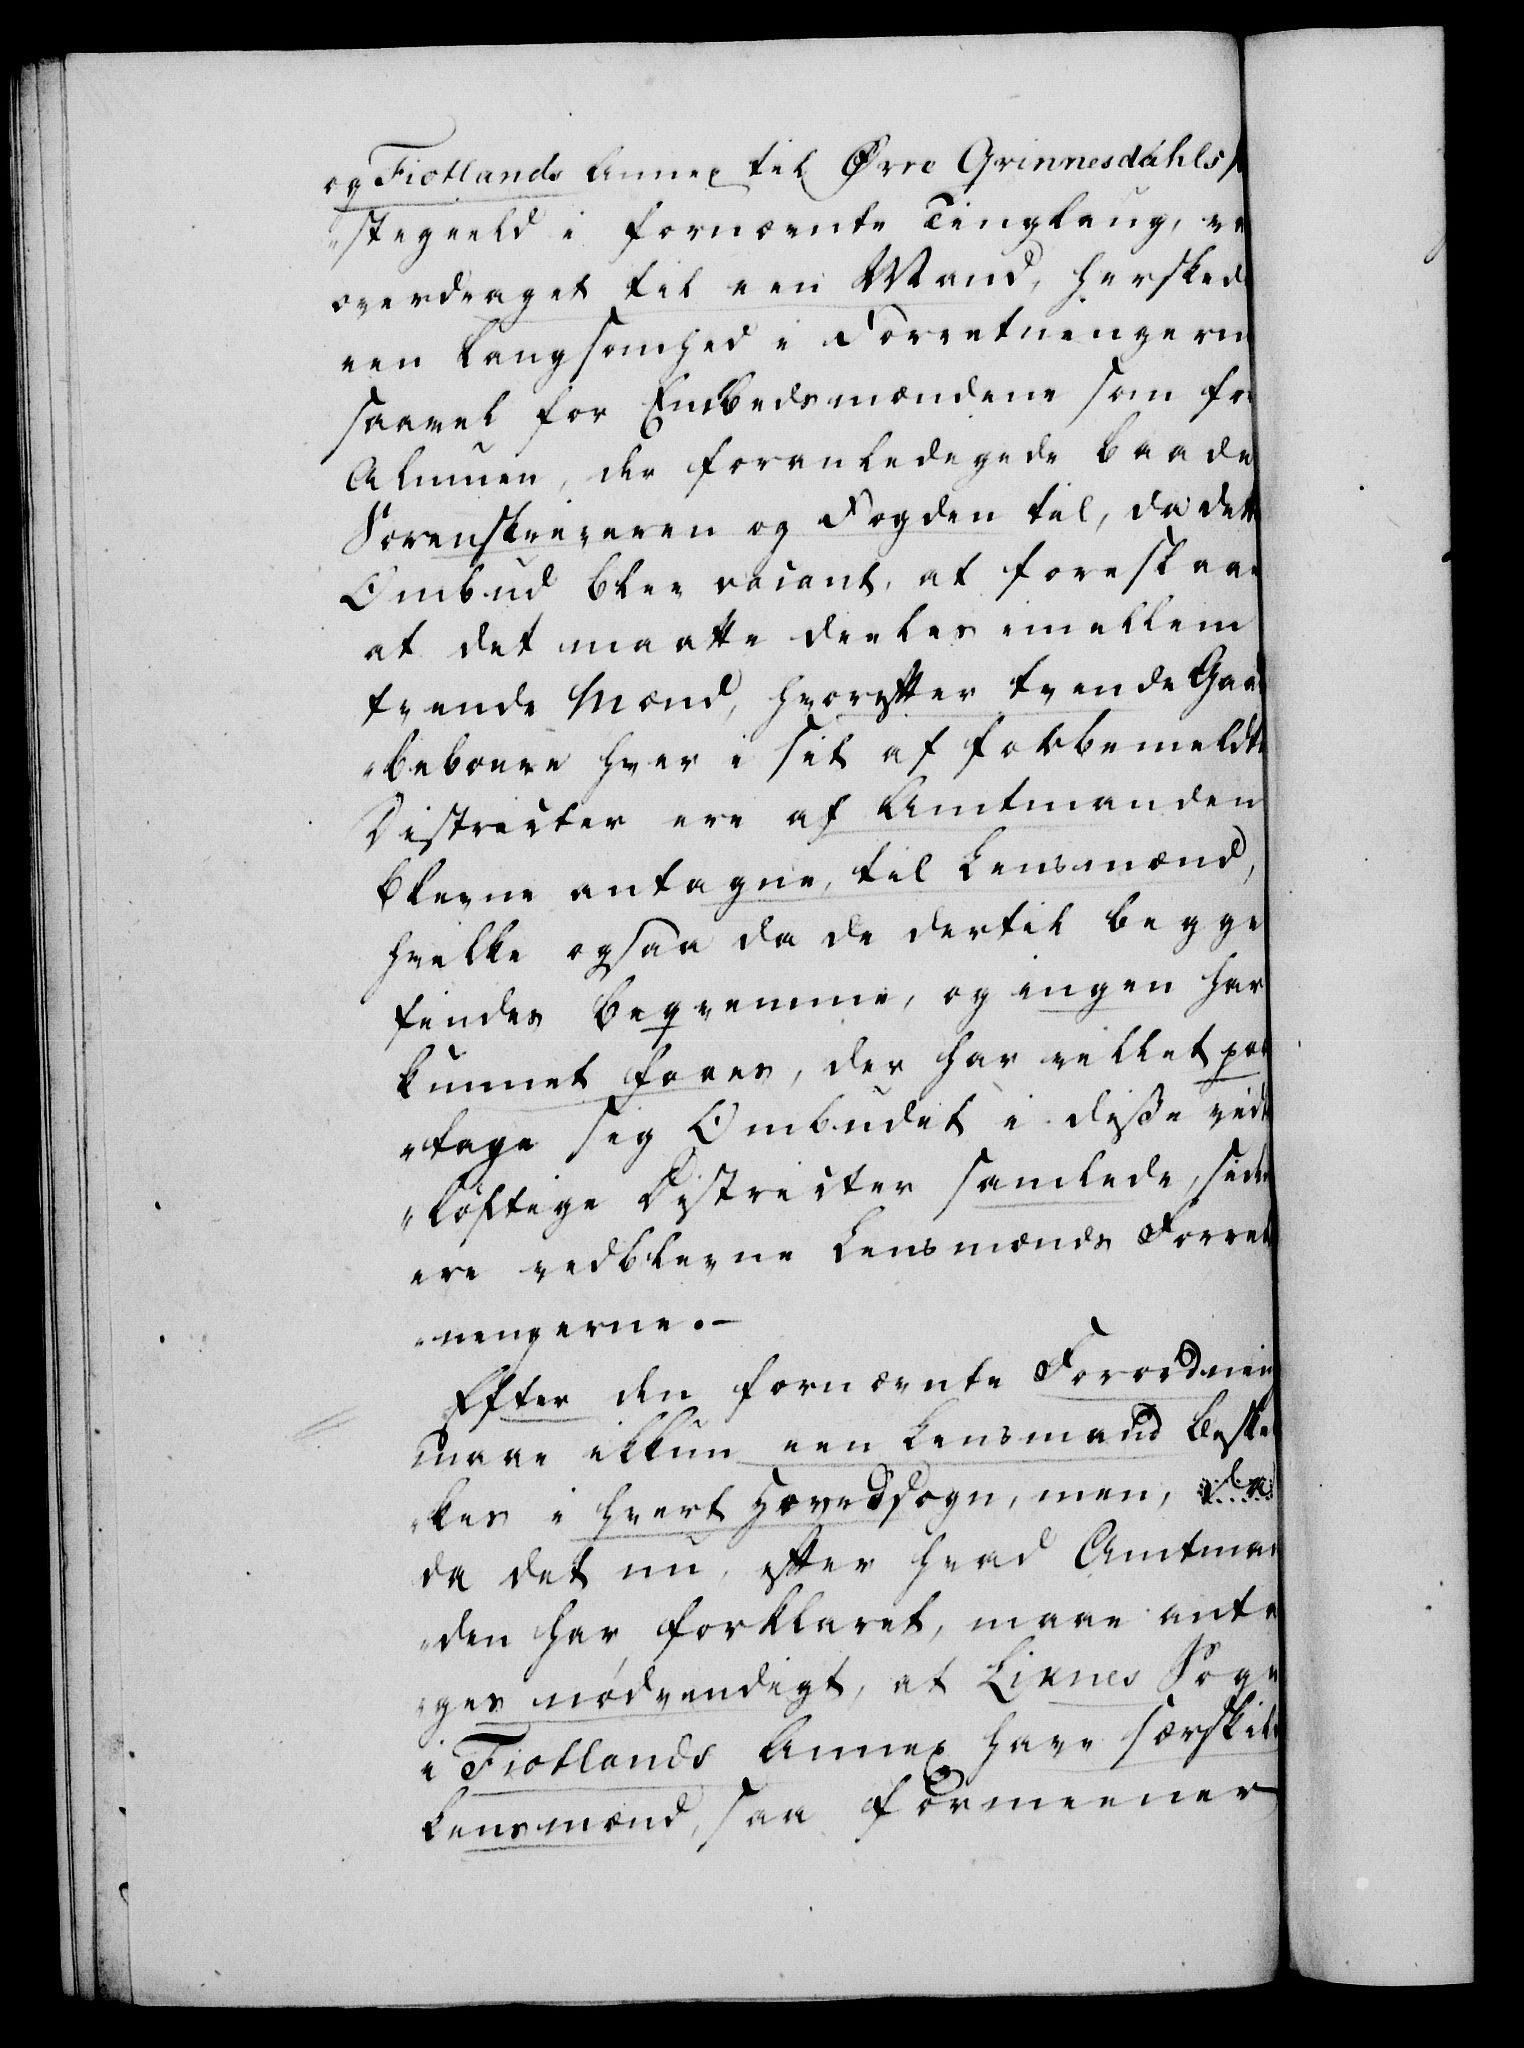 og Fiotlands Annex til Øvre Qvinnesdahls p
„stegield i fornævnte Tinglaug, va
overdraget til een Mand, herskede
een Langsomhed i Forretningerne
saavel for Embedsmændene som for
Almuen, der foranledigede baade
Sorenskriveren og Fogden til, da dette
Ombud blev vacant, at foreslaae
at det maatte deeles imellem
tvende Mænd, hvorefter tvende Gaard
„beboere hver i sit af forbemeldte
Districter ere af Amtmanden
blevne antagne, til Lensmænd,
hvilke ogsaa da de dertil begge
findes beqvemme, og ingen har
kunnet faaes, der har villet paa
„tage sig Ombudet i disse vidt
„løftige Districter samlede, siden
ere vedblevne Lensmænds Forret
„ningerne.-
Efter den fornævnte Forordning
maae ikkun een Lensmand beskik
„kes i hvert Hovedsogn, men,
da det nu, efter hvad Amtman
„den har forklaret, maae anta
„ges nødvendigt, at Liknes Sogn
i Fiotlands Annex have særskilte
Lensmænd, saa formeener